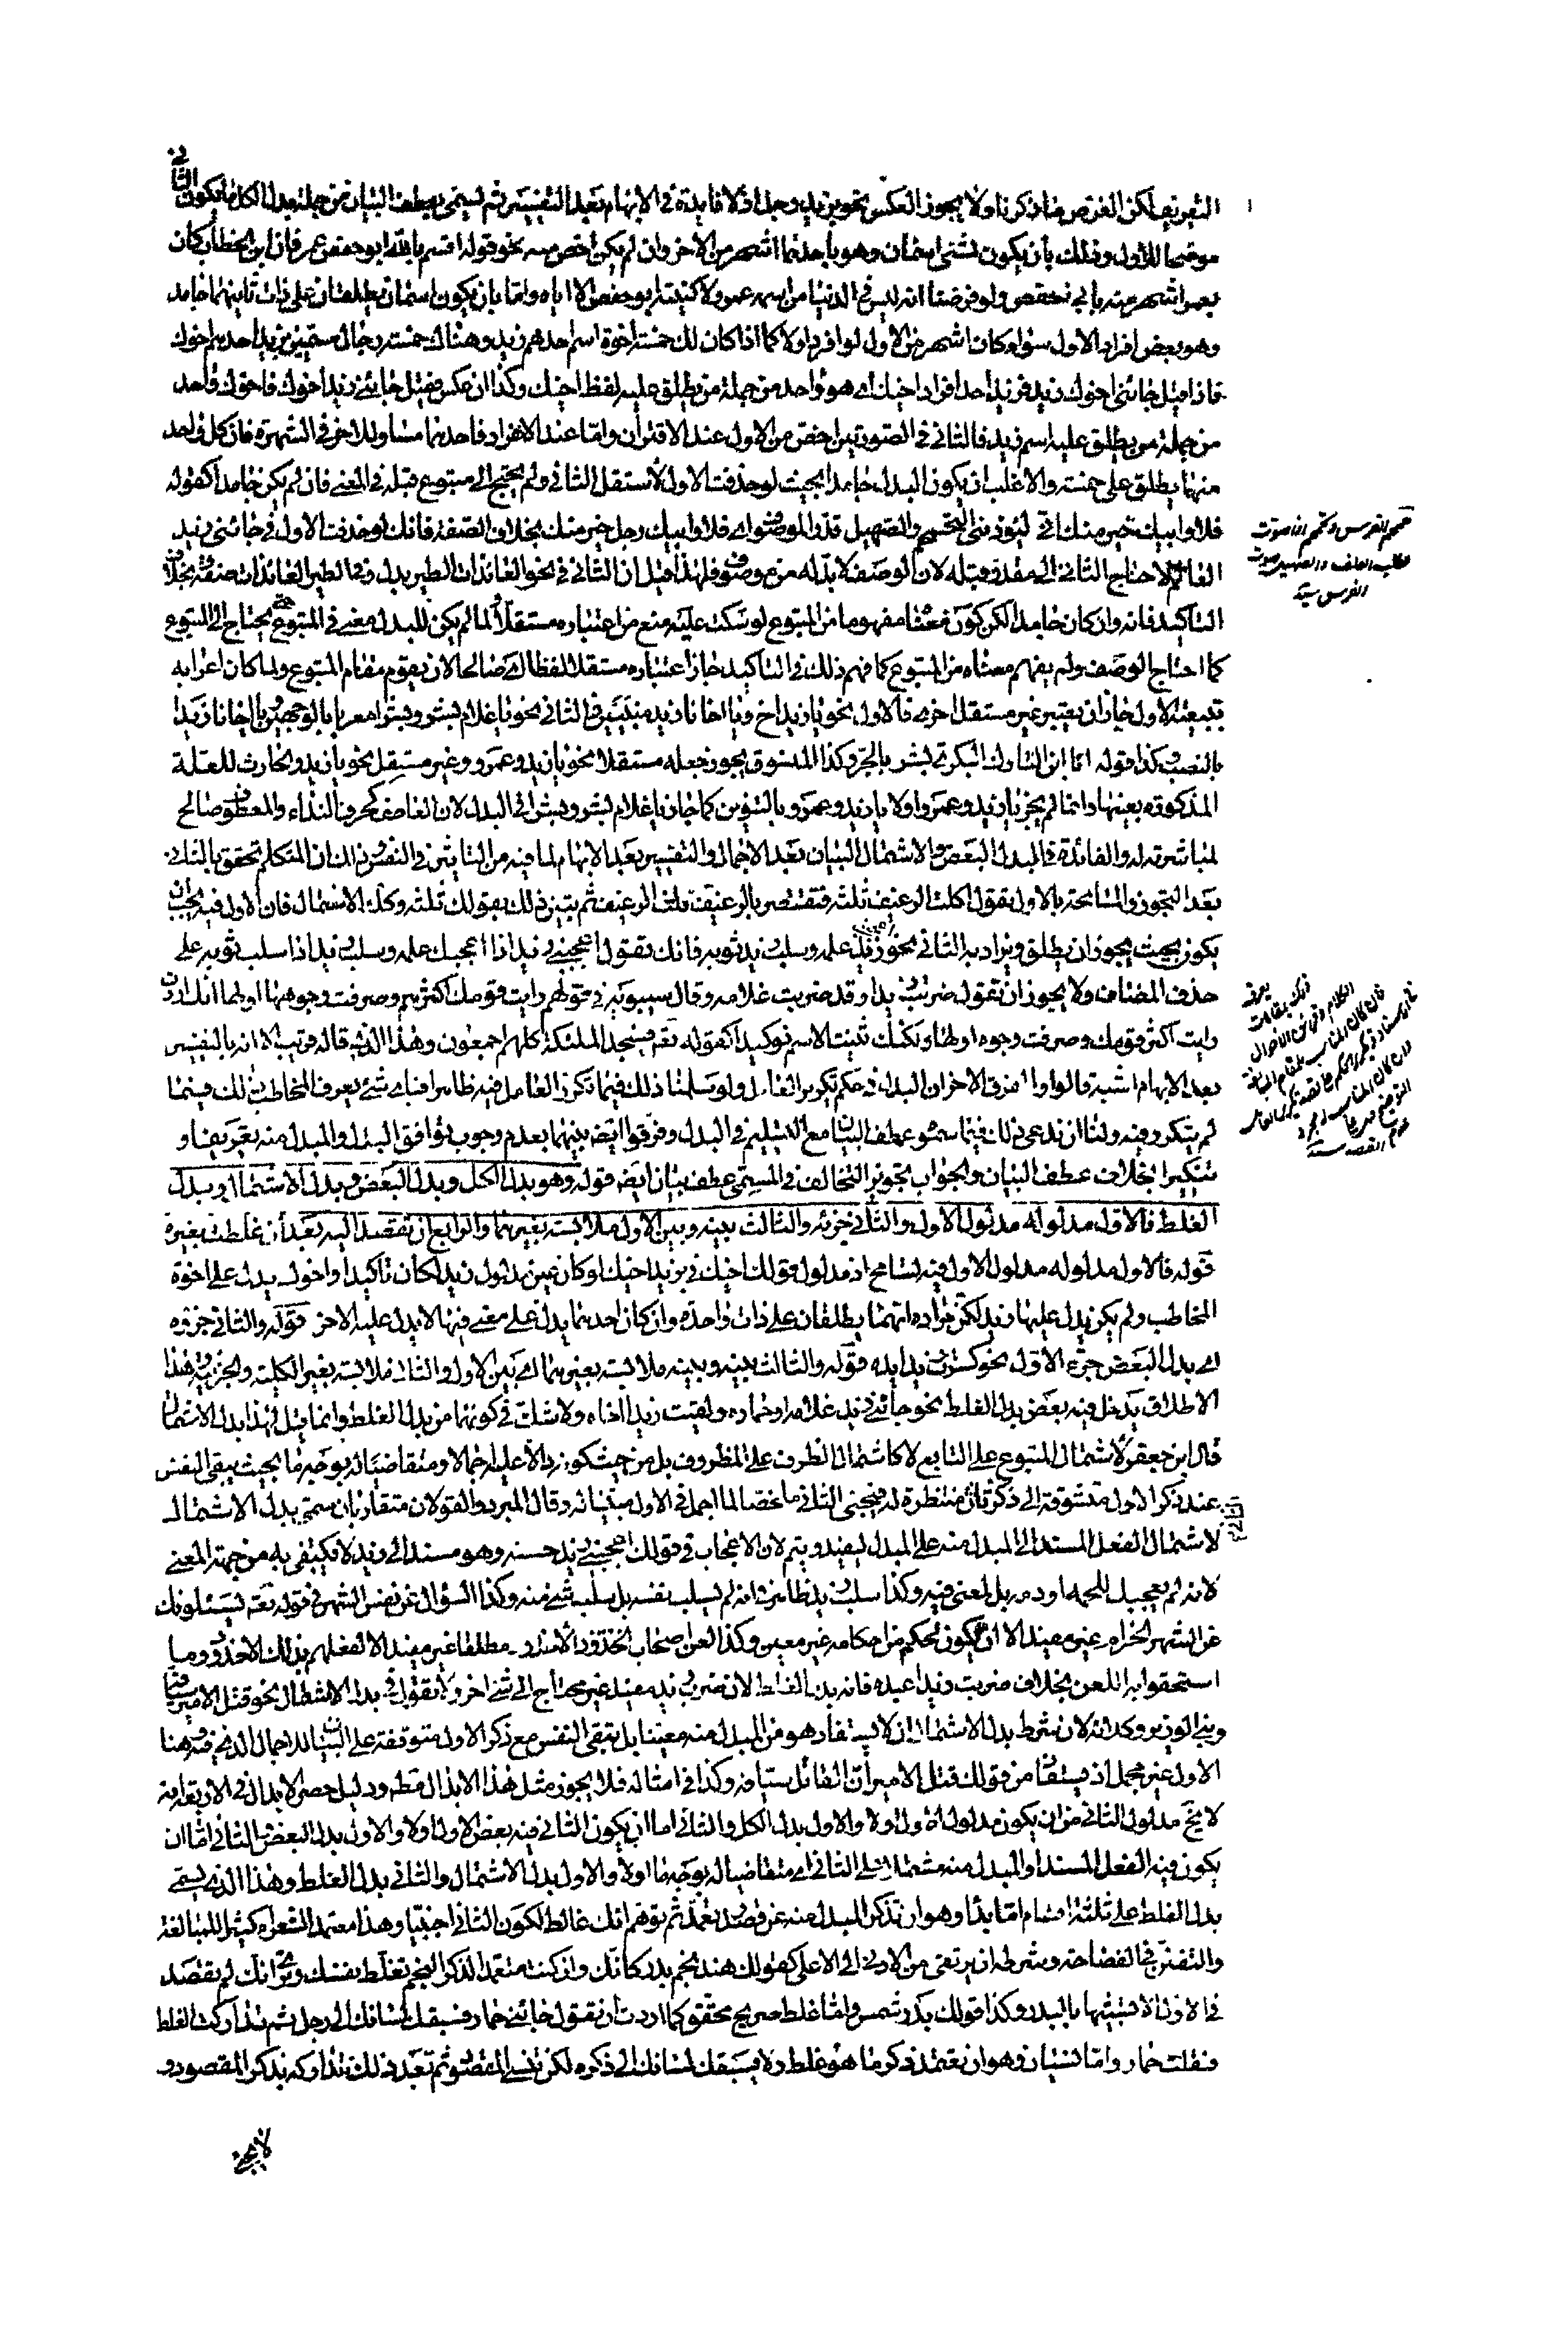 التفريع لكن الغرض ما ذكرنا ولا يجوز العكس نحو بزيد رجل اذ لا فائدة في الابهام بعد التفسير ثم يسمى بعطف البيان من جملة بدل الكل ما يكون الثاني
موضحا للاول وذلك بان يكون لشئ اسمان وهو باحدهما اشهر من الاخر وان لم يكن اخص منه نحو قوله اقسم بالله ابو حفص عمر فان ابن الخطاب كان
بعمر اشهر منه بابي حفص ولو فرضنا انه ليس في الدنيا من اسمه عمر ولا كنيته ابو حفص الا اياه واما بان يكون اسمان يطلقان على ذات ثانيهما جامد
وهو بعض افراد الاول سواء كان اشهر من الاول لو افرد او لا كما اذا كان لك خمسة اخوة اسم احدهم زيد وهناك خمسة رجال مسمين بزيد احدهم اخوك
فاذا قيل جائني اخوك زيد فزيد احد افراد اخيك اي هو واحد من جملة من يطلق عليه لفظ اخيك وكذا ان عكس فقيل جائني زيد اخوك فاخوك واحد
من جملة من يطلق عليه اسم زيد فالثاني في الصورتين اخص من الاول عند الاقتران واما عند الافراد فاحدهما مساو للاخر في الشهرة فان كل واحد
منهما يطلق على خمسة والاغلب ان يكون البدل جامدا بحيث لو حذفت الاول لاستقل الثاني ولم يحتج الى متبوع قبله في المعنى فان لم يكن جامدا كقوله
فلا وابيك خير منك اني ليؤذيني التحمحم والصهيل قدر الموصوف اي فلا وابيك رجل خير منك بخلاف الصفة فانك لو حذفت الاول في جائني زيد
العالم لاحتاج الثاني الى مقدر قبله لان الوصف لا بد له من موصوف فلهذا قيل ان الثاني في نحو العائذات الطير بدل وفي الطير العائذات صفة وبخلاف
التاكيد فانه وان كان جامدا لكن كون معناه مفهوما من المتبوع لو سكت عليه منع من اعتباره مستقلا ولما لم يكن للبدل معنى في المتبوع حتى يحتاج الى المتبوع
كما احتاج الوصف ولم يفهم معناه من المتبوع كما فهم ذلك في التاكيد جاز اعتباره مستقلا لفظا اي صالحا لان يقوم مقام المتبوع ولما كان اعرابه
بتبعية الاول جاز ان يعتبر غير مستقل اخرى فالاول نحو يا زيد اخ ويا اخانا زيد مبنيين والثاني نحو يا غلام بشر وبشرا معربا بالوجهين ويا اخانا زيدا
بالنصب وكذا قوله انا ابن التارك البكري بشر بالجر وكذا المنسوق يجوز جعله مستقلا نحو يا زيد وعمرو وغير مستقل نحو يا زيد والحارث للعلة
المذكورة بعينها وانما لم يجز يا زيد وعمروا ولا يا زيد وعمرو بالتنوين كما جاز يا غلام بشر وبشرا في البدل لان العاطف كحرف النداء والمعطوف صالح
لمباشرته له والفائدة في البدل البعض والاشتمال البيان بعد الاجمال والتفسير بعد الابهام لما فيه من التاثير في النفس وذلك ان المتكلم تحقق بالثاني
بعد التجوز والمسامحة بالاول يقول اكلت الرغيف ثلثه فتقتصر بالرغيف ثلث الرغيف ثم يبين ذلك بقولك ثلثه وكذا الاشتمال فان الاول فيه يجب ان
يكون بحيث يجوز ان يطلق ويراد به الثاني نحو اعجبني زيد علمه وسلب زيد ثوبه فانك تقول اعجبني زيد اذا اعجبك علمه وسلب زيد اذا سلب ثوبه على
حذف المضاف ولا يجوز ان تقول ضربت زيدا وقد ضربت غلامه وقال سيبويه في قولهم رايت قومك اكثرهم وصرفت وجوهها اولها انك اردت
رايت اكثر قومك وصرفت وجوه اولها ولكنك ثنيت الاسم توكيدا كقوله تعه فسجد الملئكة كلهم اجمعون وهذا الذي قاله قريب الا انه بالتفسير
بعد الابهام اشبه قالوا والفرق الاخر ان البدل في حكم تكرير العامل ولو سلمنا ذلك فيما تكرر العامل فيه ظاهرا فباي شئ يعرف المخاطب ذلك فيما
لم يتكرر فيه ولنا ان ندعي ذلك فيما سموه عطف البيان مع التسليم في البدل وفرقوا ايضا بينهما بعدم وجوب توافق البدل والمبدل منه تعريفا و
تنكيرا بخلاف عطف البيان والجواب تجويز التخالف في المسمى عطف بيان ايضا قوله وهو بدل الكل وبدل البعض وبدل الاشتمال وبدل
الغلط فالاول مدلوله مدلول الاول والثاني جزئه والثالث بينه وبين الاول ملابسة بغيرهما والرابع ان تقصد اليه بعد ان غلطت بغيره
قوله فالاول مدلوله مدلول الاول فيه تسامح اذ مدلول قولك اخيك في بزيد اخيك لو كان عين مدلول زيد لكان تاكيدا واخوك يدل على اخوة
المخاطب ولم يكن يدل عليها زيد لكن مراده انهما يطلقان على ذات واحدة وان كان احدهما يدل على معنى فيها لا يدل عليه الاخر قوله والثاني جزؤه
اي بدل البعض جزء الاول نحو كسرت زيدا يده قوله والثالث بينه وبينه ملابسة بغيرهما اي بين الاول والثالث ملابسة بغير الكلية والجزئية وهذا
الاطلاق يدخل فيه بعض بدل الغلط نحو جائني زيد غلامه او حماره ولقيت زيدا اخاه ولا شك في كونهما من بدل الغلط وانما قيل لهذا بدل الاشتمال
قال ابن جعفر لاشتمال المتبوع على التابع لا كاشتمال الظرف على المظروف بل من حيث كونه دالا عليه اجمالا ومتقاضيا له بوجه ما بحيث يبقى النفس
عند ذكر الاول متشوقة الى ذكر ثان منتظرة له فيجئ الثاني ملخصا لما اجمل في الاول مبينا له وقال المبرد والقولان متقاربان سمي بدل الاشتمال
لاشتمال الفعل المسند الى المبدل منه على البدل ليفيد ويتم لان الاعجاب في قولك اعجبني زيد حسنه وهو مسند الى زيد لا يكتفى به من جهة المعنى
لانه لم يعجبك للحمه او دمه بل لمعنى فيه وكذا سلب زيد ظاهر في انه لم يسلب نفسه بل سلب شئ منه وكذا السؤال عن نفس الشهر في قوله تعه يسئلونك
عن الشهر الحرام غير مفيد الا ان يكون لحكم من احكامه غير معين وكذا لعن اصحاب الاخدود الاخدود مطلقا غير مفيد الا لفعلهم بذلك الاخدود وما
استحقوا به اللعن بخلاف ضربت زيدا عبده فانه بدل الغلط لان ضرب زيد مفيد غير محتاج الى شئ اخر ولا تقول في بدل الاشتمال نحو قتل الامير سيافه
وبنى الوزير وكلاؤه لان شرط بدل الاشتمال ان لا يستفاد هو من المبدل منه معينا بل تبقى النفس مع ذكر الاول متوقفة على البيان للاجمال الذي فيه وهنا
الاول غير مجمل اذ يستفاد من قولك قتل الامير ان القاتل سيافه وكذا في امثاله فلا يجوز مثل هذا الابدال قطه ودليل حصر الابدال في الاربعة انه
لا يخ مدلول الثاني من ان يكون مدلول الاول او لا والاول بدل الكل والثاني اما ان يكون الثاني فيه بعض الاول او لا والاول بدل البعض والثاني اما ان
يكون فيه الفعل المسند او المبدل منه مشتملا على الثاني اي متقاضيا له بوجه ما او لا والاول بدل الاشتمال والثاني بدل الغلط وهذا الذي يسمى
بدل الغلط على ثلثة اقسام اما بداء وهو ان تذكر المبدل منه عن قصد وتعمد ثم توهم انك غالط لكون الثاني اجنبيا وهذا معتمد الشعراء كثيرا للمبالغة
والتفنن في الفصاحة وشرطه ان يرتقي من الادنى الى الاعلى كقولك هند نجم بدر كانك وان كنت متعمدا لذكر النجم تغلط نفسك وترى انك لم تقصد
في الاول الا تشبيهها بالبدر وكذا قولك بدر شمس واما غلط صريح محقق كما اردت ان تقول جائني حمار فسبقك لسانك الى رجل ثم تداركت الغلط
فقلت حمار واما نسيان وهو ان تعتمد ذكر ما هو غلط ولا يسبقك لسانك الى ذكره لكن تنسى المقصود ثم بعد ذلك تتداركه بذكر المقصود و
لا يجئ